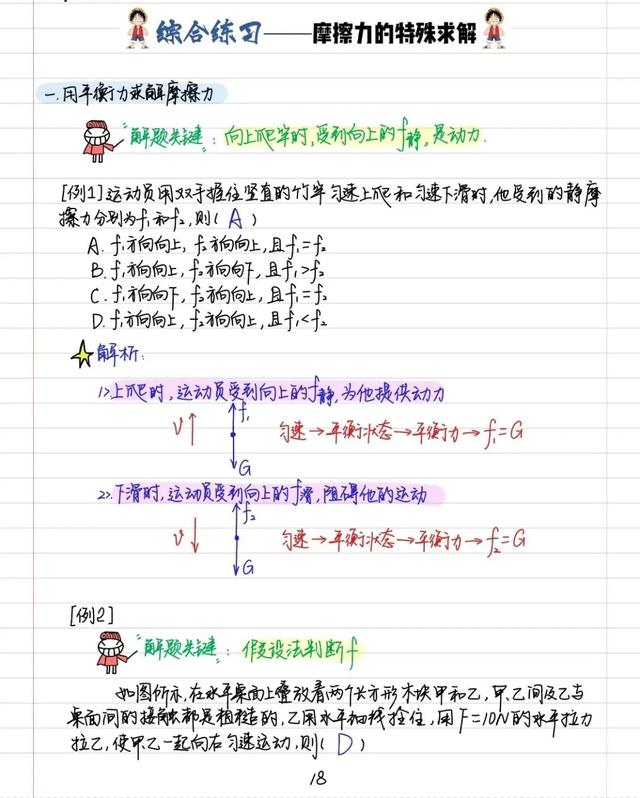 综合练习——摩擦力的特殊求解
一.用平衡力求解摩擦力
解题关键：向上爬竿时,受到向上的f静,是动力.
[例1]运动员用双手握住竖直的竹竿匀速上爬和匀速下滑时,他受到的静摩
擦力分别为f₁和f₂,则( A )
A. f₁方向向上, f₂方向向上,且f₁=f₂
B. f₁方向向上, f₂方向向下,且f₁>f₂
C. f₁方向向下, f₂方向向上,且f₁=f₂
D. f₁方向向上, f₂方向向上,且f₁<f₂
解析:
1>上爬时,运动员受到向上的f静,为他提供动力
V f₁ 匀速→平衡状态→平衡力→f₁=G
G
2>下滑时,运动员受到向上的f滑,阻碍他的运动
V f₂ 匀速→平衡状态→平衡力→f₂=G
G
[例2]
解题关键：假设法判断f
如图所示,在水平桌面上叠放着两个长方形木块甲和乙,甲、乙间及乙与
桌面间的接触都是粗糙的,乙用水平细线拴住,用F=10N的水平拉力
拉乙,使甲乙一起向右匀速运动,则( D )
18